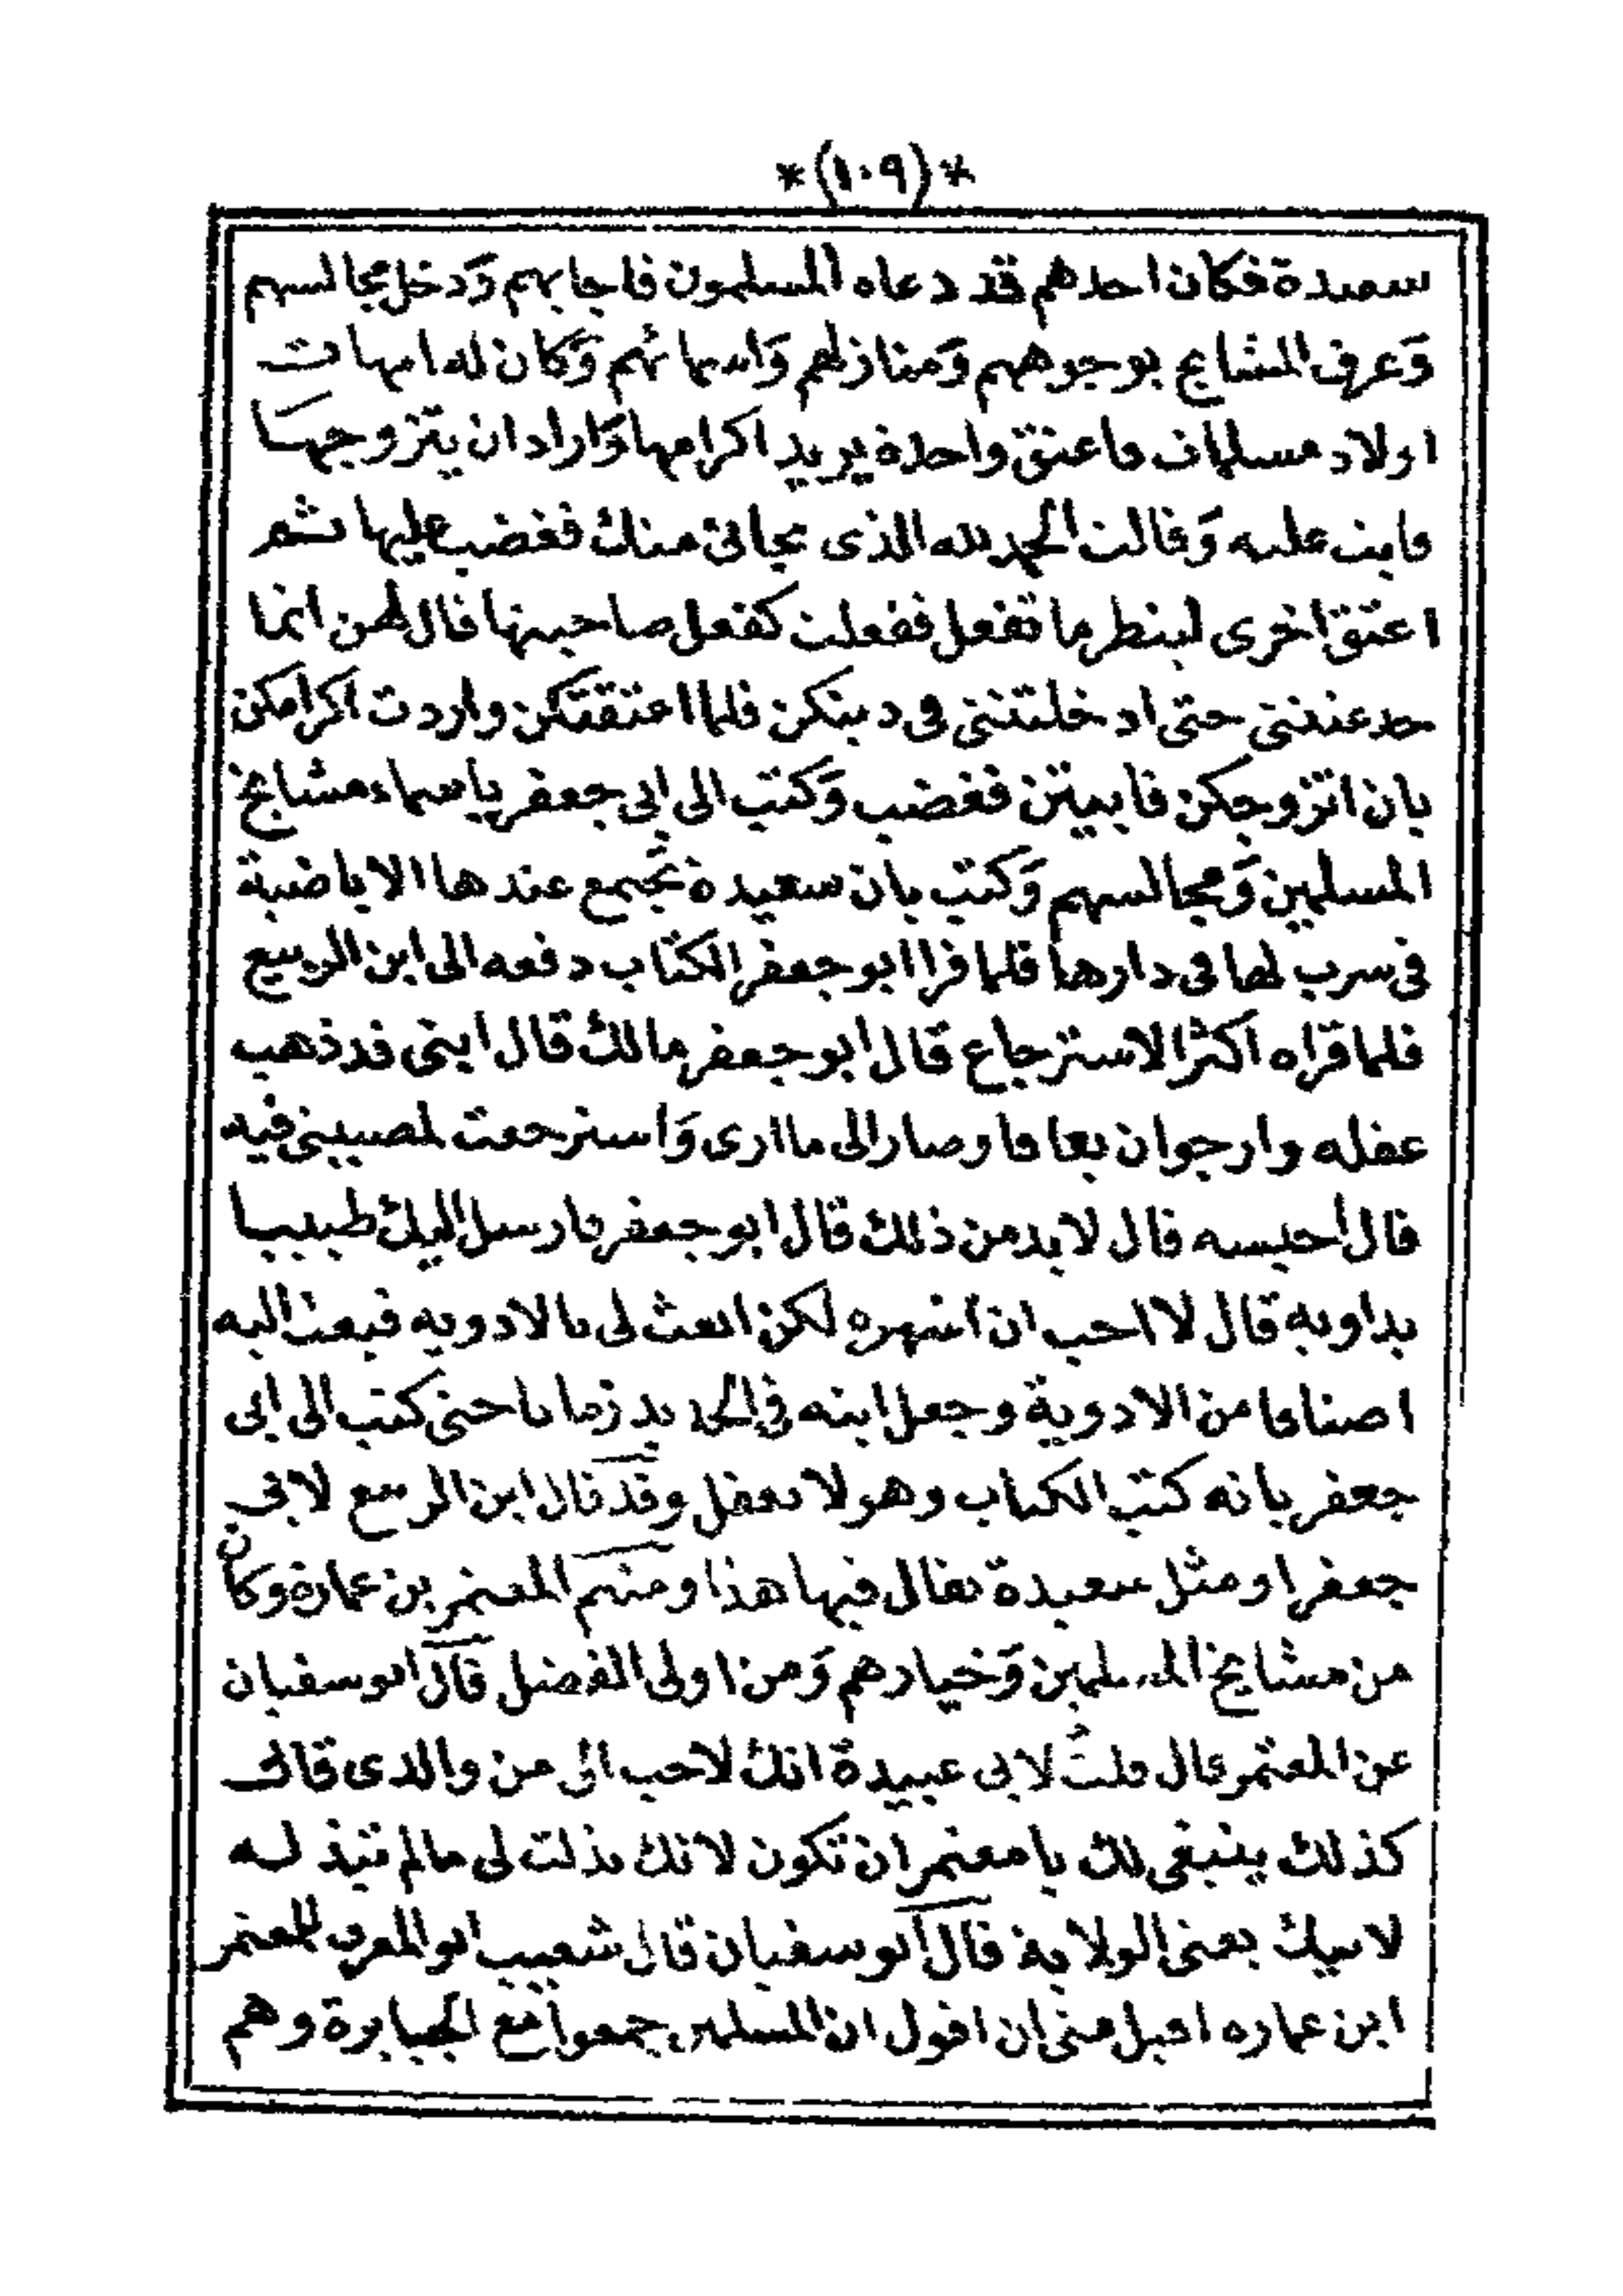 *(١٠٩)*
سعيدة فكان احدهم قد دعاه المسلمون فاجابهم وَدخل مجالسهم
وَعرف المشايخ بوجوههم وَمنازلهم وَاسمائهم وَكان له امهات
اولاد مسلمات فاعتق واحدة يريد اكرامها وَاراد ان يتزوجها
فابت عليه وَقالت الحمد لله الذى نجانى منك فغضب عليها ثم
اعتق اخرى لينظر ما تفعل ففعلت كفعل صاحبتها قال لهن انما
خدعتننى حتى ادخلتننى فى دينكن فلما اعتقتكن واردت اكرامكن
بان اتزوجكن فابيتن فغضب وَكتب الى ابى جعفر باسماء مشايخ
المسلمين وَمجالسهم وَكتب بان سعيدة تجَمع عندها الاباضية
فى سرب لها فى دارها فلما قرا ابو جعفر الكتاب دفعه الى ابن الربيع
فلما قراه اكثر الاسترجاع قال ابو جعفر مالك قال ابنى قد ذهب
عقله وارجوان يعافا وصار الى ما ارى وَاسترجعت لمصيبتى فيه
قال احبسه قال لابد من ذلك قال ابو جعفر فارسل اليك طبيبا
يداويه قال لا احب ان اشهره لكن ابعث لى بالادويه فبعث اليه
اصنافا من الادوية وجعل ابنه فى الحديد زمانا حتى كتب الى ابى
جعفر بانه كتب الكتاب وهو لا يعقل وقد قال ابن الربيع لابى
جعفر او مثل سعيدة يقال فيها هذا ومنهم المعتمر بن عمارة وكان
من مشايخ المسلمين وَخيارهم وَمن اولى الفضل قال ابو سفيان
عن المعتمر قال قلتُ لابى عبيدة انك لاحب الى من والدى قال
كذلك ينبغى لك يا معتمر ان تكون لانك بذلت لى مالم تبذله
لابيك يعنى الولاية قال ابو سفيان قال شعيب ابو المعرف للمعتمر
ابن عماره اقبل منى ان اقول ان المسلمين جمعوا مع الجبابرة وهم